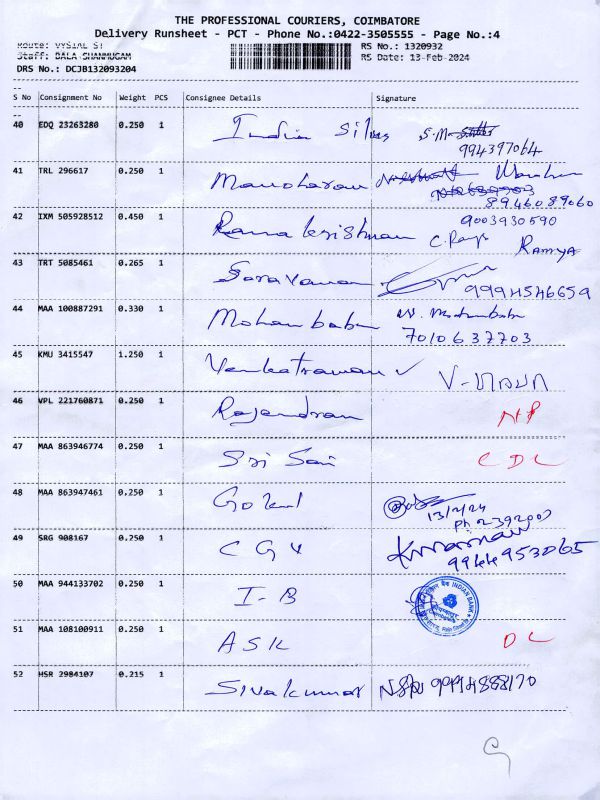 THE PROFESSIONAL COURIERS, COIMBATORE
Delivery Runsheet - PCT - Phone No.:0422-3505555 - Page No.:4
Route: VYSIAL ST
RS No.: 1320932
Staff: BALA SHANMUGAM
RS Date: 13-Feb-2024
DRS No.: DCJB132093204
S No Consignment No Weight PCS Consignee Details Signature
40 EDQ 23263280 0.250 1 India Silvers S.M.
994397064
41 TRL 296617 0.250 1 Manoharan
8946089060
42 IXM 505928512 0.450 1 Ramakrishnan
9003930590
RAMYA
43 TRT 5085461 0.265 1 Saravanan
9994546659
44 MAA 100887291 0.330 1 Mohan babu
7010637703
45 KMU 3415547 1.250 1 Venkatraman
46 VPL 221760871 0.250 1 Rajendran NP
47 MAA 863946774 0.250 1 Sri Sai CDL
48 MAA 863947461 0.250 1 Gokul
13/2/24
ph 2392007
49 SRG 908167 0.250 1 CGV
9944953065
50 MAA 944133702 0.250 1 I-B INDIAN BANK
51 MAA 108100911 0.250 1 ASK DL
52 HSR 2984107 0.215 1 Sivakumar 9994888170